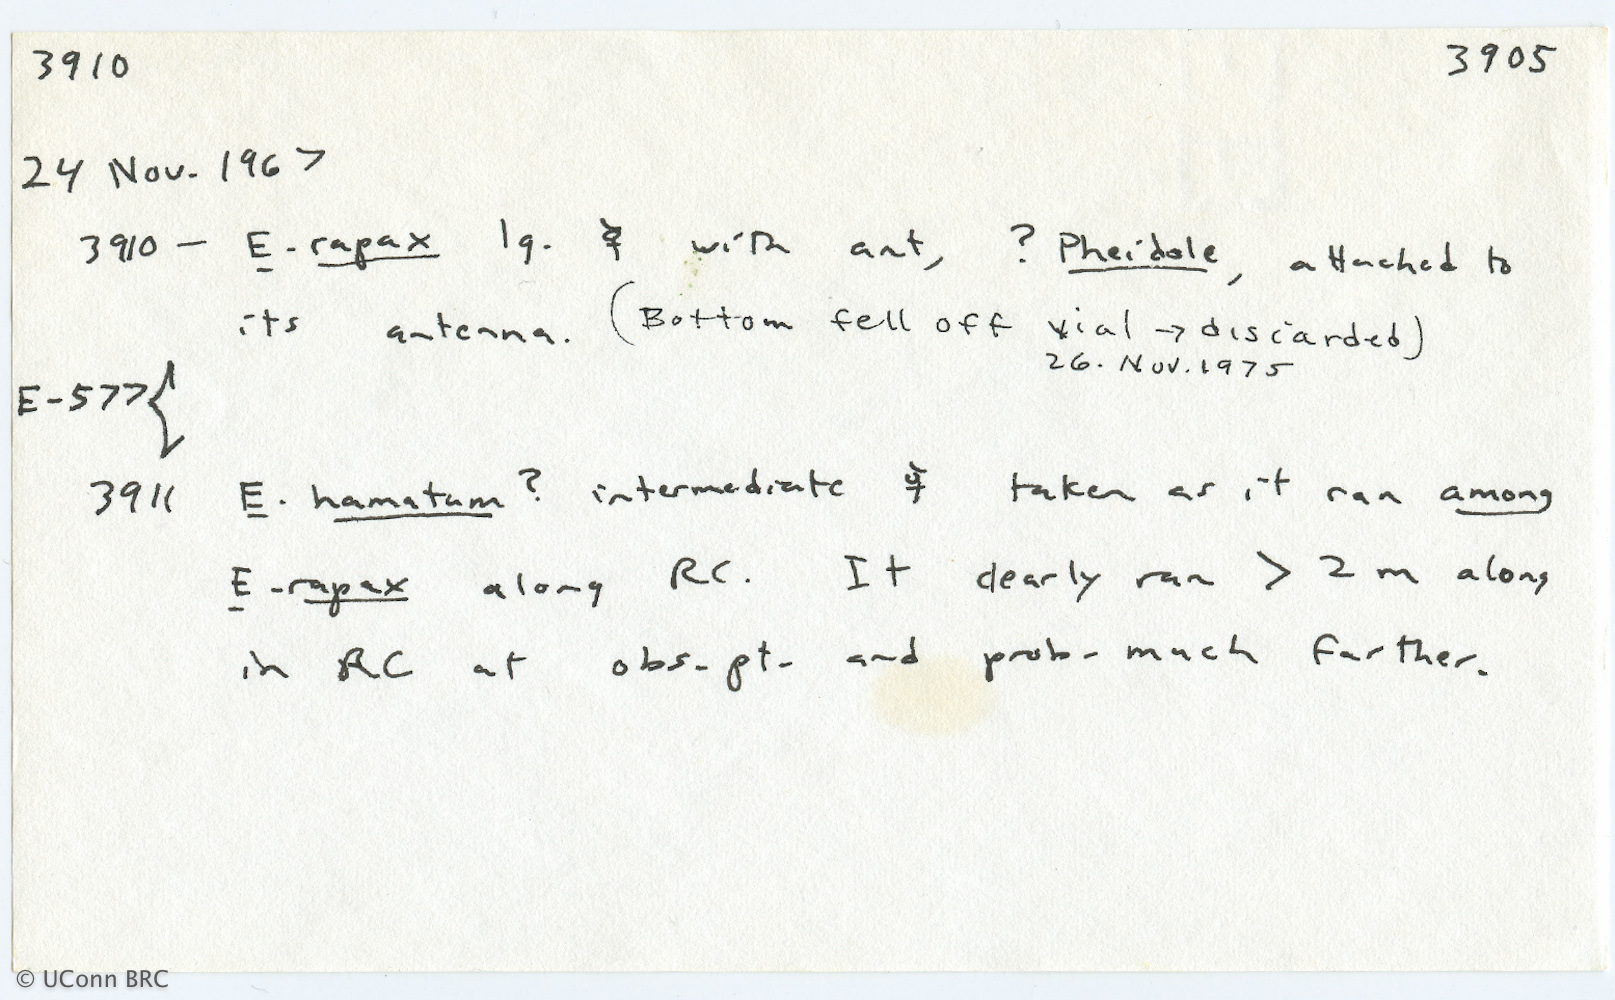 3910 3905
24 Nov. 1967
3910 - E. rapax lg. ☿ with ant, ? Pheidole, attached to
its antenna. (Bottom fell off vial → discarded)
26. Nov. 1975
E-577 {
3911 E. hamatum? intermediate ☿ taken as it ran among
E. rapax along RC. It clearly ran > 2 m along
in RC at obs. pt. and prob. much farther.
© UConn BRC